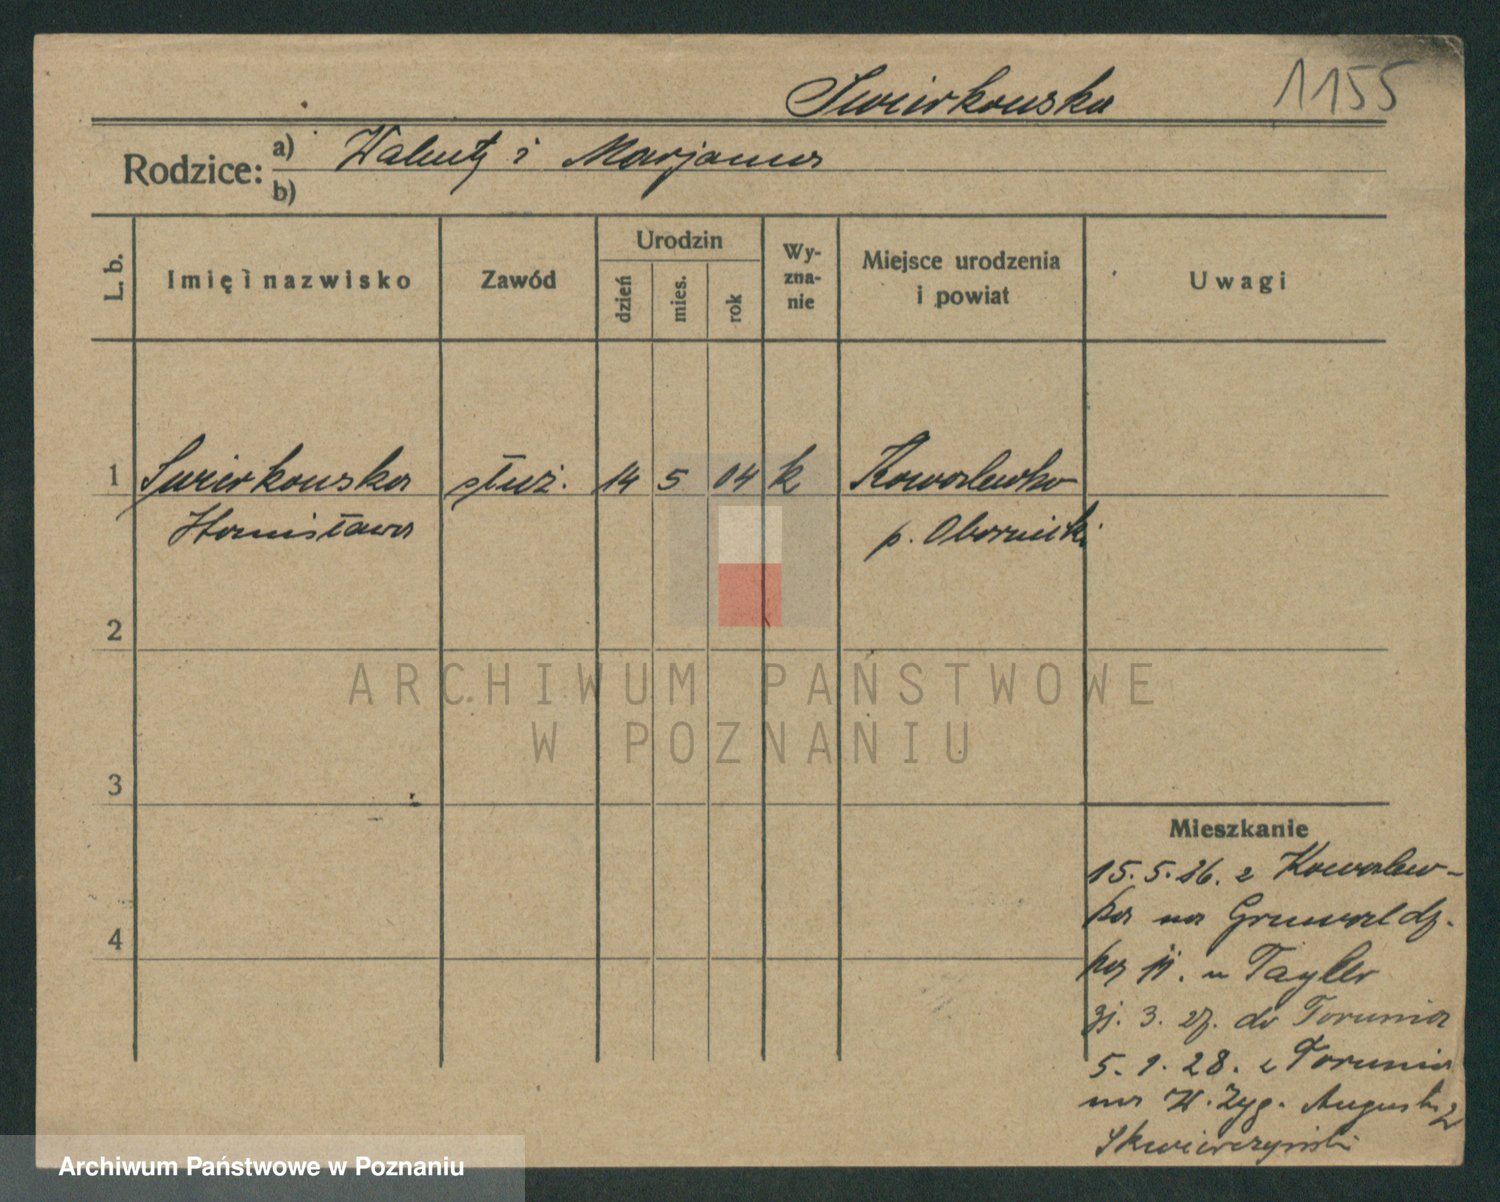 Swierkowska 1155
Rodzice: a) Walenty i Marjanna
b)
L. b. Imię i nazwisko Zawód Urodzin dzień mies. rok Wy-zna-nie Miejsce urodzenia i powiat Uwagi
1 Swierkowska służ. 14 5 04 k Kowalewko
Stanisława p. Obornicki
2
ARCHIWUM PAŃSTWOWE
W POZNANIU
3
Mieszkanie
15. 5. 26. z Kowalew-
ka na Grunwaldz-
ką 11. u Tayler
31. 3. 27. do Torunia
5. 1. 28. z Torunia
na W. Zyg. Augusta 2
Skwierczyński
4
Archiwum Państwowe w Poznaniu